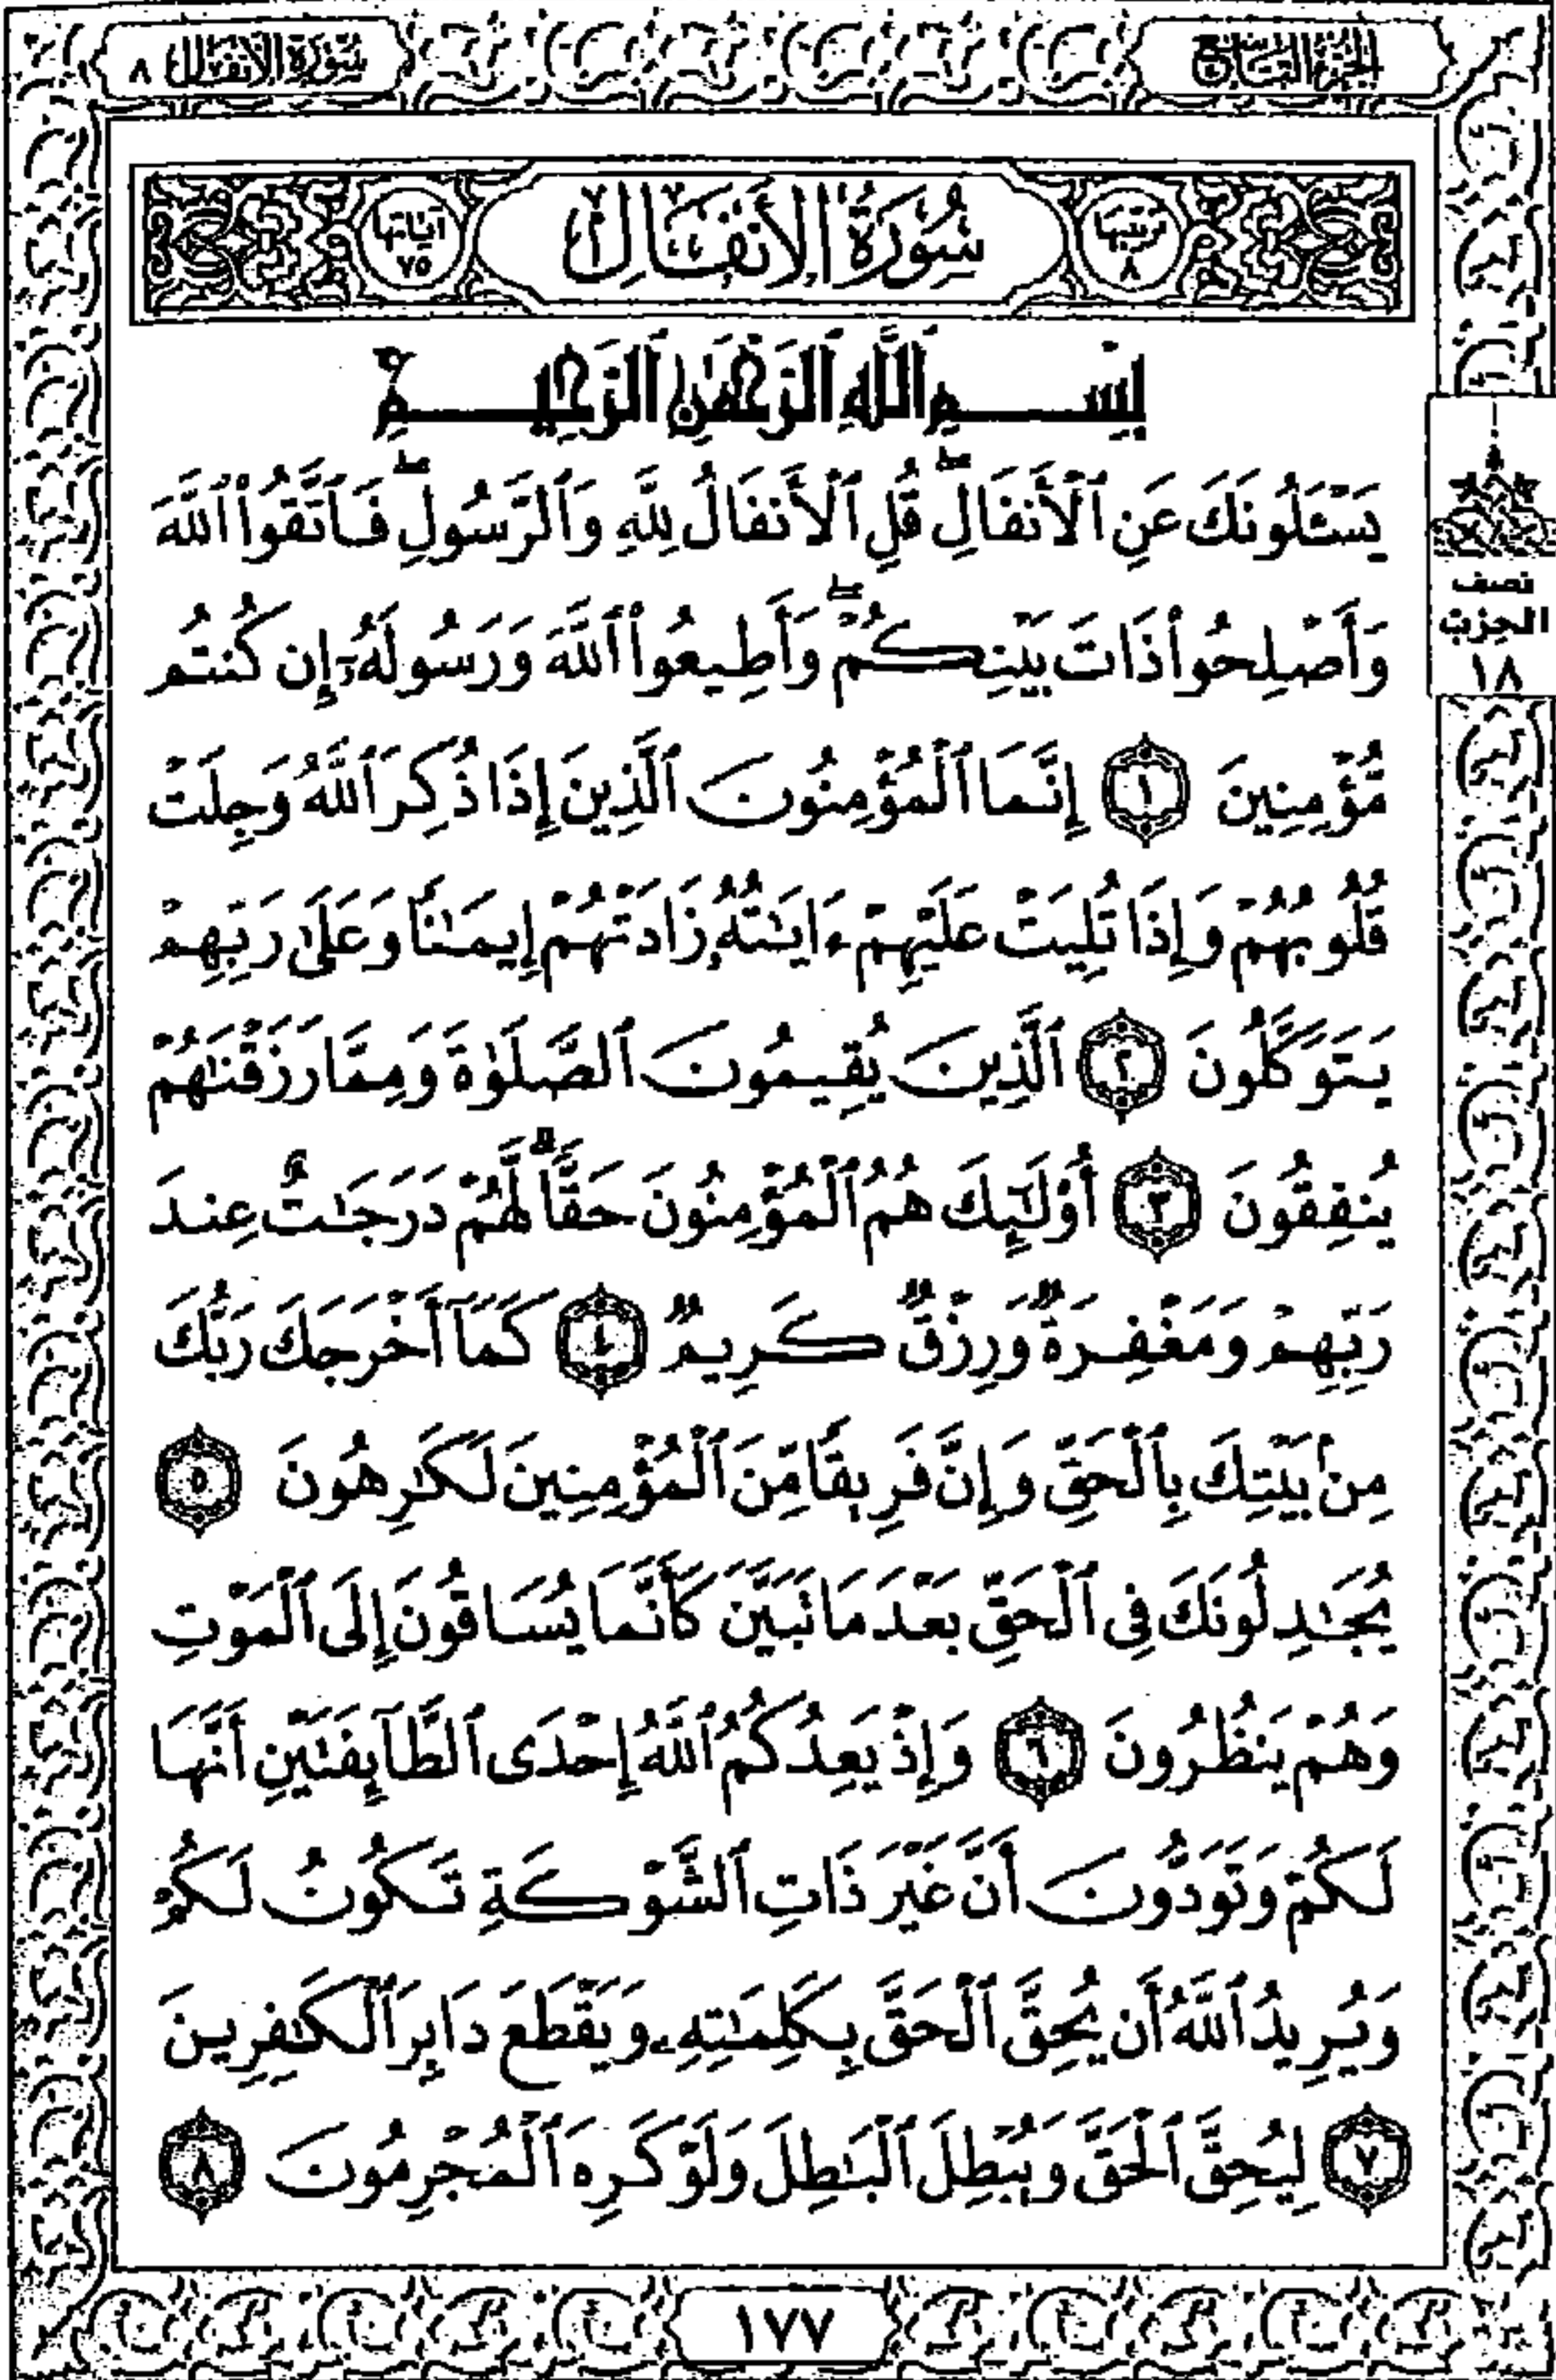 الجزء التاسع
سورة الأنفال ٨
ترتيبها ٨
سُورَةُ الأَنفَالِ
آياتها ٧٥
بِسْمِ ٱللَّهِ ٱلرَّحْمَٰنِ ٱلرَّحِيمِ
يَسْـَٔلُونَكَ عَنِ ٱلْأَنفَالِ ۖ قُلِ ٱلْأَنفَالُ لِلَّهِ وَٱلرَّسُولِ ۖ فَٱتَّقُوا۟ ٱللَّهَ
وَأَصْلِحُوا۟ ذَاتَ بَيْنِكُمْ ۖ وَأَطِيعُوا۟ ٱللَّهَ وَرَسُولَهُۥٓ إِن كُنتُم
مُّؤْمِنِينَ ١ إِنَّمَا ٱلْمُؤْمِنُونَ ٱلَّذِينَ إِذَا ذُكِرَ ٱللَّهُ وَجِلَتْ
قُلُوبُهُمْ وَإِذَا تُلِيَتْ عَلَيْهِمْ ءَايَٰتُهُۥ زَادَتْهُمْ إِيمَٰنًا وَعَلَىٰ رَبِّهِمْ
يَتَوَكَّلُونَ ٢ ٱلَّذِينَ يُقِيمُونَ ٱلصَّلَوٰةَ وَمِمَّا رَزَقْنَٰهُمْ
يُنفِقُونَ ٣ أُو۟لَٰٓئِكَ هُمُ ٱلْمُؤْمِنُونَ حَقًّا ۚ لَّهُمْ دَرَجَٰتٌ عِندَ
رَبِّهِمْ وَمَغْفِرَةٌ وَرِزْقٌ كَرِيمٌ ٤ كَمَآ أَخْرَجَكَ رَبُّكَ
مِنۢ بَيْتِكَ بِٱلْحَقِّ وَإِنَّ فَرِيقًا مِّنَ ٱلْمُؤْمِنِينَ لَكَٰرِهُونَ ٥
يُجَٰدِلُونَكَ فِى ٱلْحَقِّ بَعْدَ مَا تَبَيَّنَ كَأَنَّمَا يُسَاقُونَ إِلَى ٱلْمَوْتِ
وَهُمْ يَنظُرُونَ ٦ وَإِذْ يَعِدُكُمُ ٱللَّهُ إِحْدَى ٱلطَّآئِفَتَيْنِ أَنَّهَا
لَكُمْ وَتَوَدُّونَ أَنَّ غَيْرَ ذَاتِ ٱلشَّوْكَةِ تَكُونُ لَكُمْ
وَيُرِيدُ ٱللَّهُ أَن يُحِقَّ ٱلْحَقَّ بِكَلِمَٰتِهِۦ وَيَقْطَعَ دَابِرَ ٱلْكَٰفِرِينَ
٧ لِيُحِقَّ ٱلْحَقَّ وَيُبْطِلَ ٱلْبَٰطِلَ وَلَوْ كَرِهَ ٱلْمُجْرِمُونَ ٨
نصف
الحزب
١٨
١٧٧